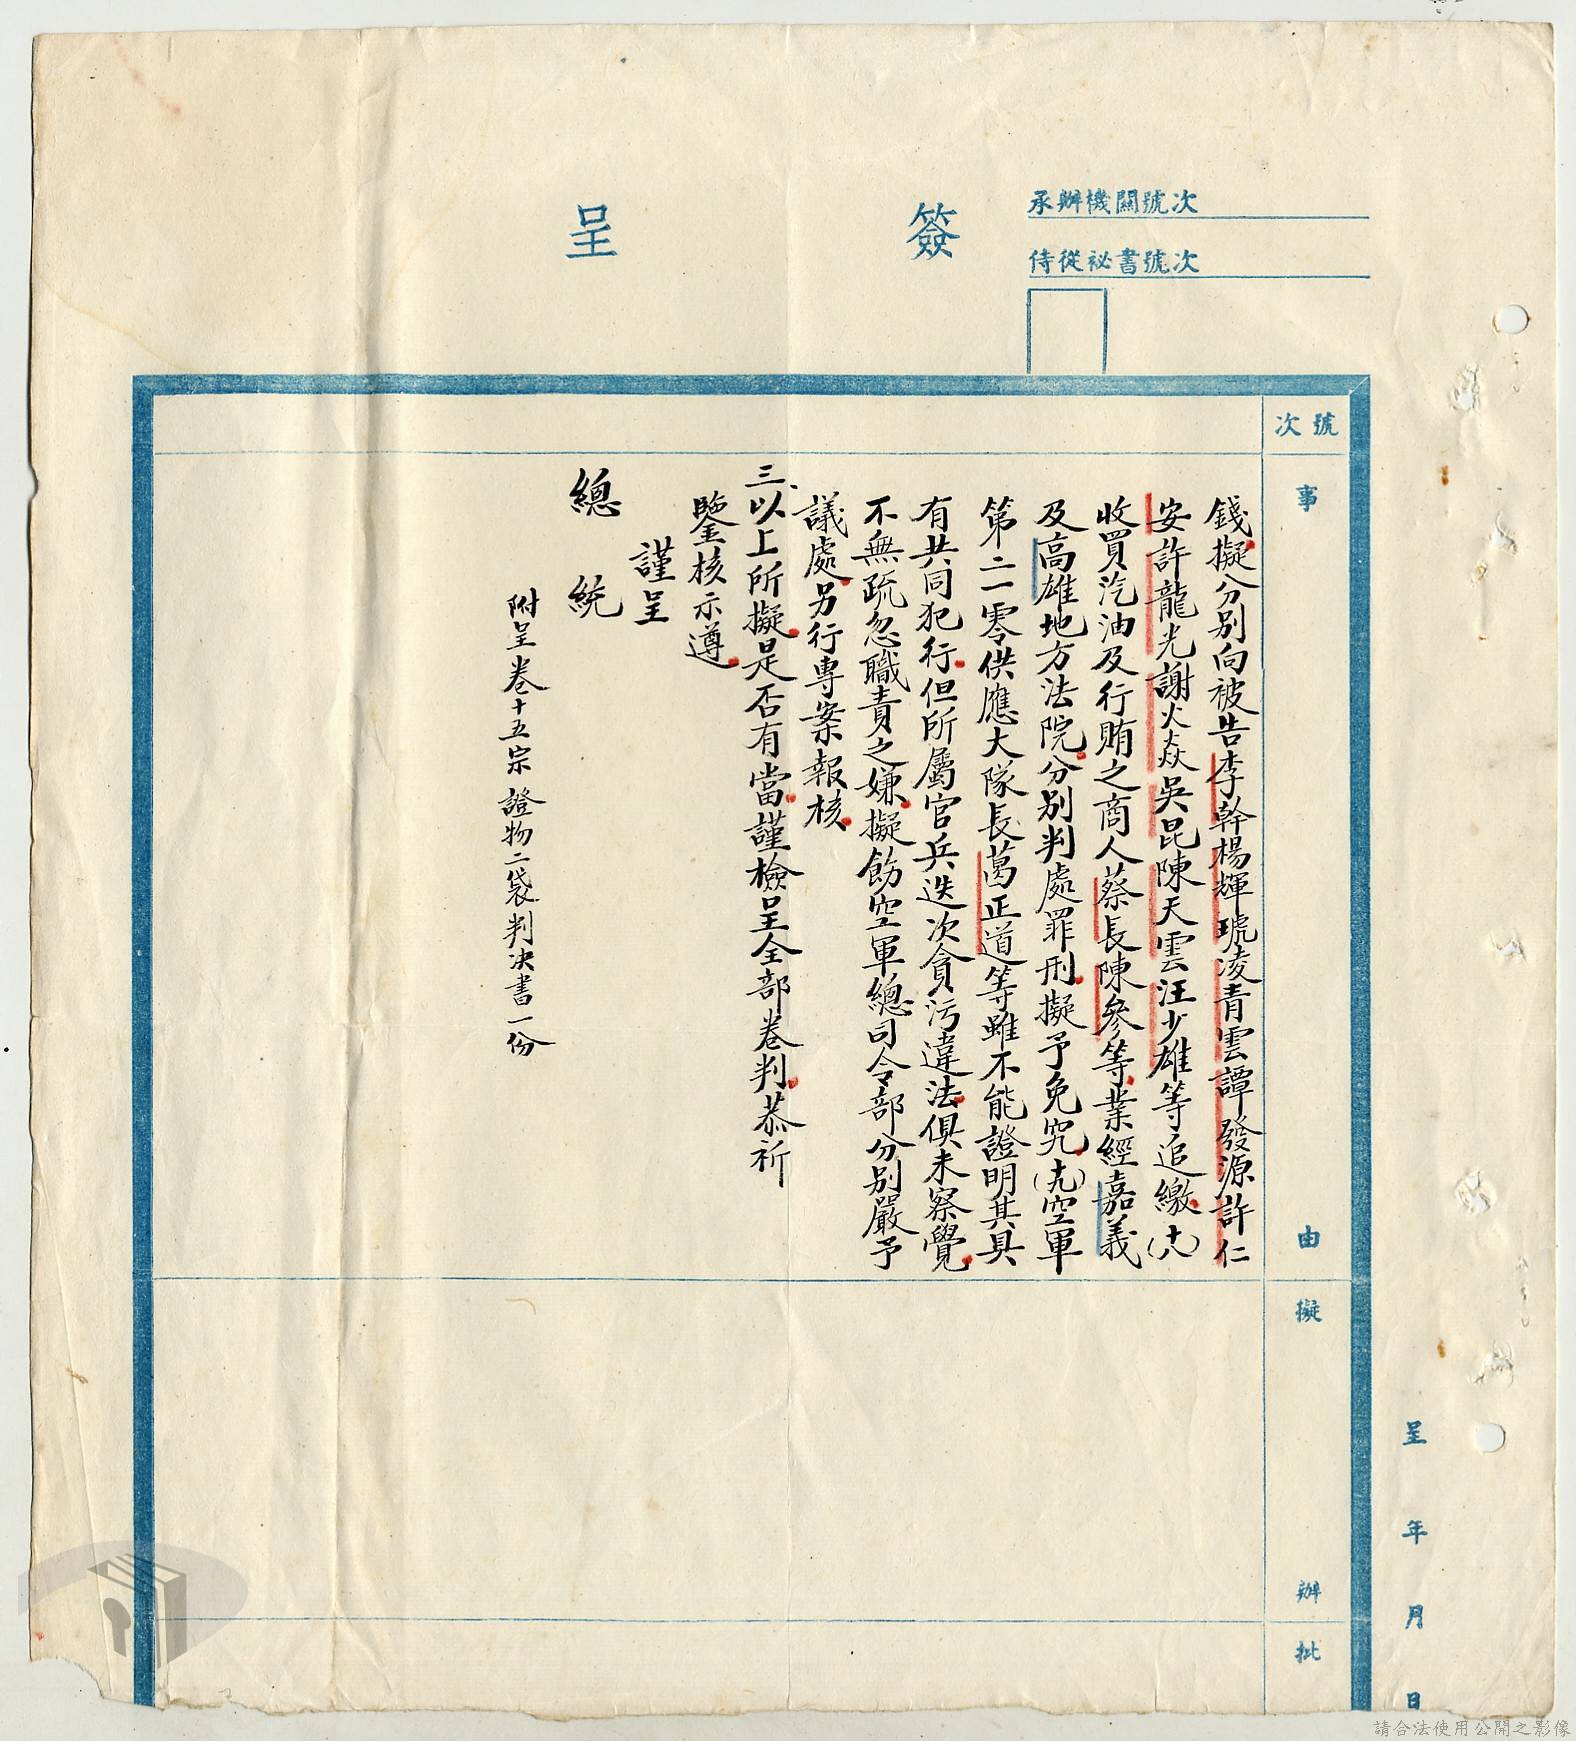 簽呈
承辦機關號次
侍從祕書號次
號次
事由
擬辦
批
呈 年 月 日
錢擬分別向被告李幹楊輝琥凌青雲譚發源許仁
安許龍光謝火焱吳昆陳天雲汪少雄等追繳(十八)
收買汽油及行賄之商人蔡長陳參等業經嘉義
及高雄地方法院分別判處罪刑擬予免究(十九)空軍
第二一零供應大隊長葛正道等雖不能證明其具
有共同犯行但所屬官兵迭次貪污違法俱未察覺
不無疏忽職責之嫌擬飭空軍總司令部分別嚴予
議處另行專案報核
三、以上所擬是否有當謹檢呈全部卷判恭祈
鑒核示遵
謹呈
總統
附呈卷十五宗證物二袋判決書一份
請合法使用公開之影像